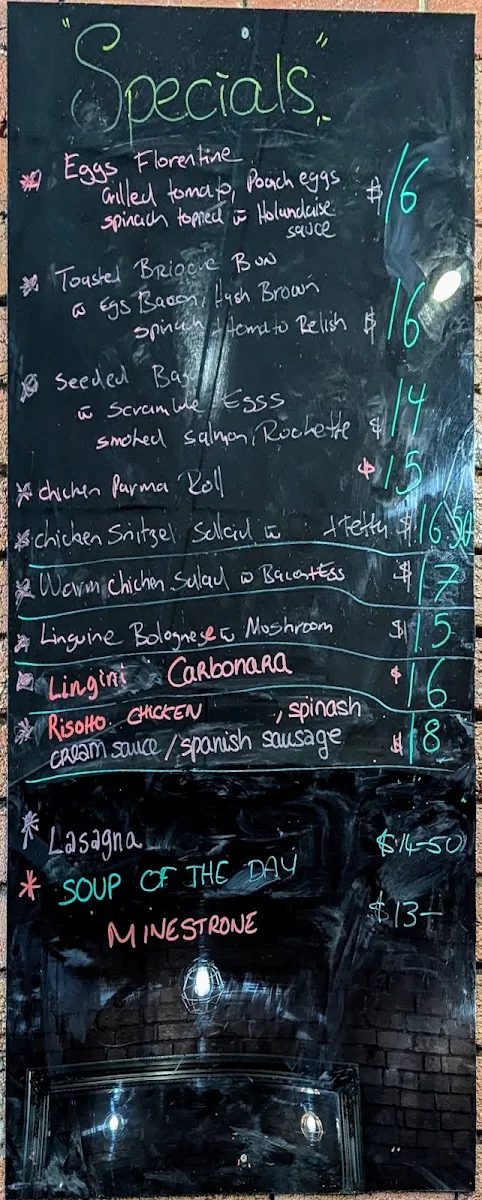 "Specials"
* Eggs Florentine
Grilled tomato, Poach eggs
spinach topped w Holandaise
sauce
$16
* Toasted Brioche Bun
w Eggs Bacon, Hash Brown
spinach + tomato Relish $16
* Seeded
w Scramble Eggs
smoked salmon, Rockette $14
* chicken Parma Roll $15
* chicken Snitzel Salad w $16.50
* Warm chicken Salad w Bacon + Egg $17
* Linguine Bolognese w Moshroom $15
* Lingini Carbonara $16
* Risotto CHICKEN , spinash
cream sauce / spanish sausage $18
* Lasagna $14-50
* SOUP OF THE DAY
MINESTRONE $13-